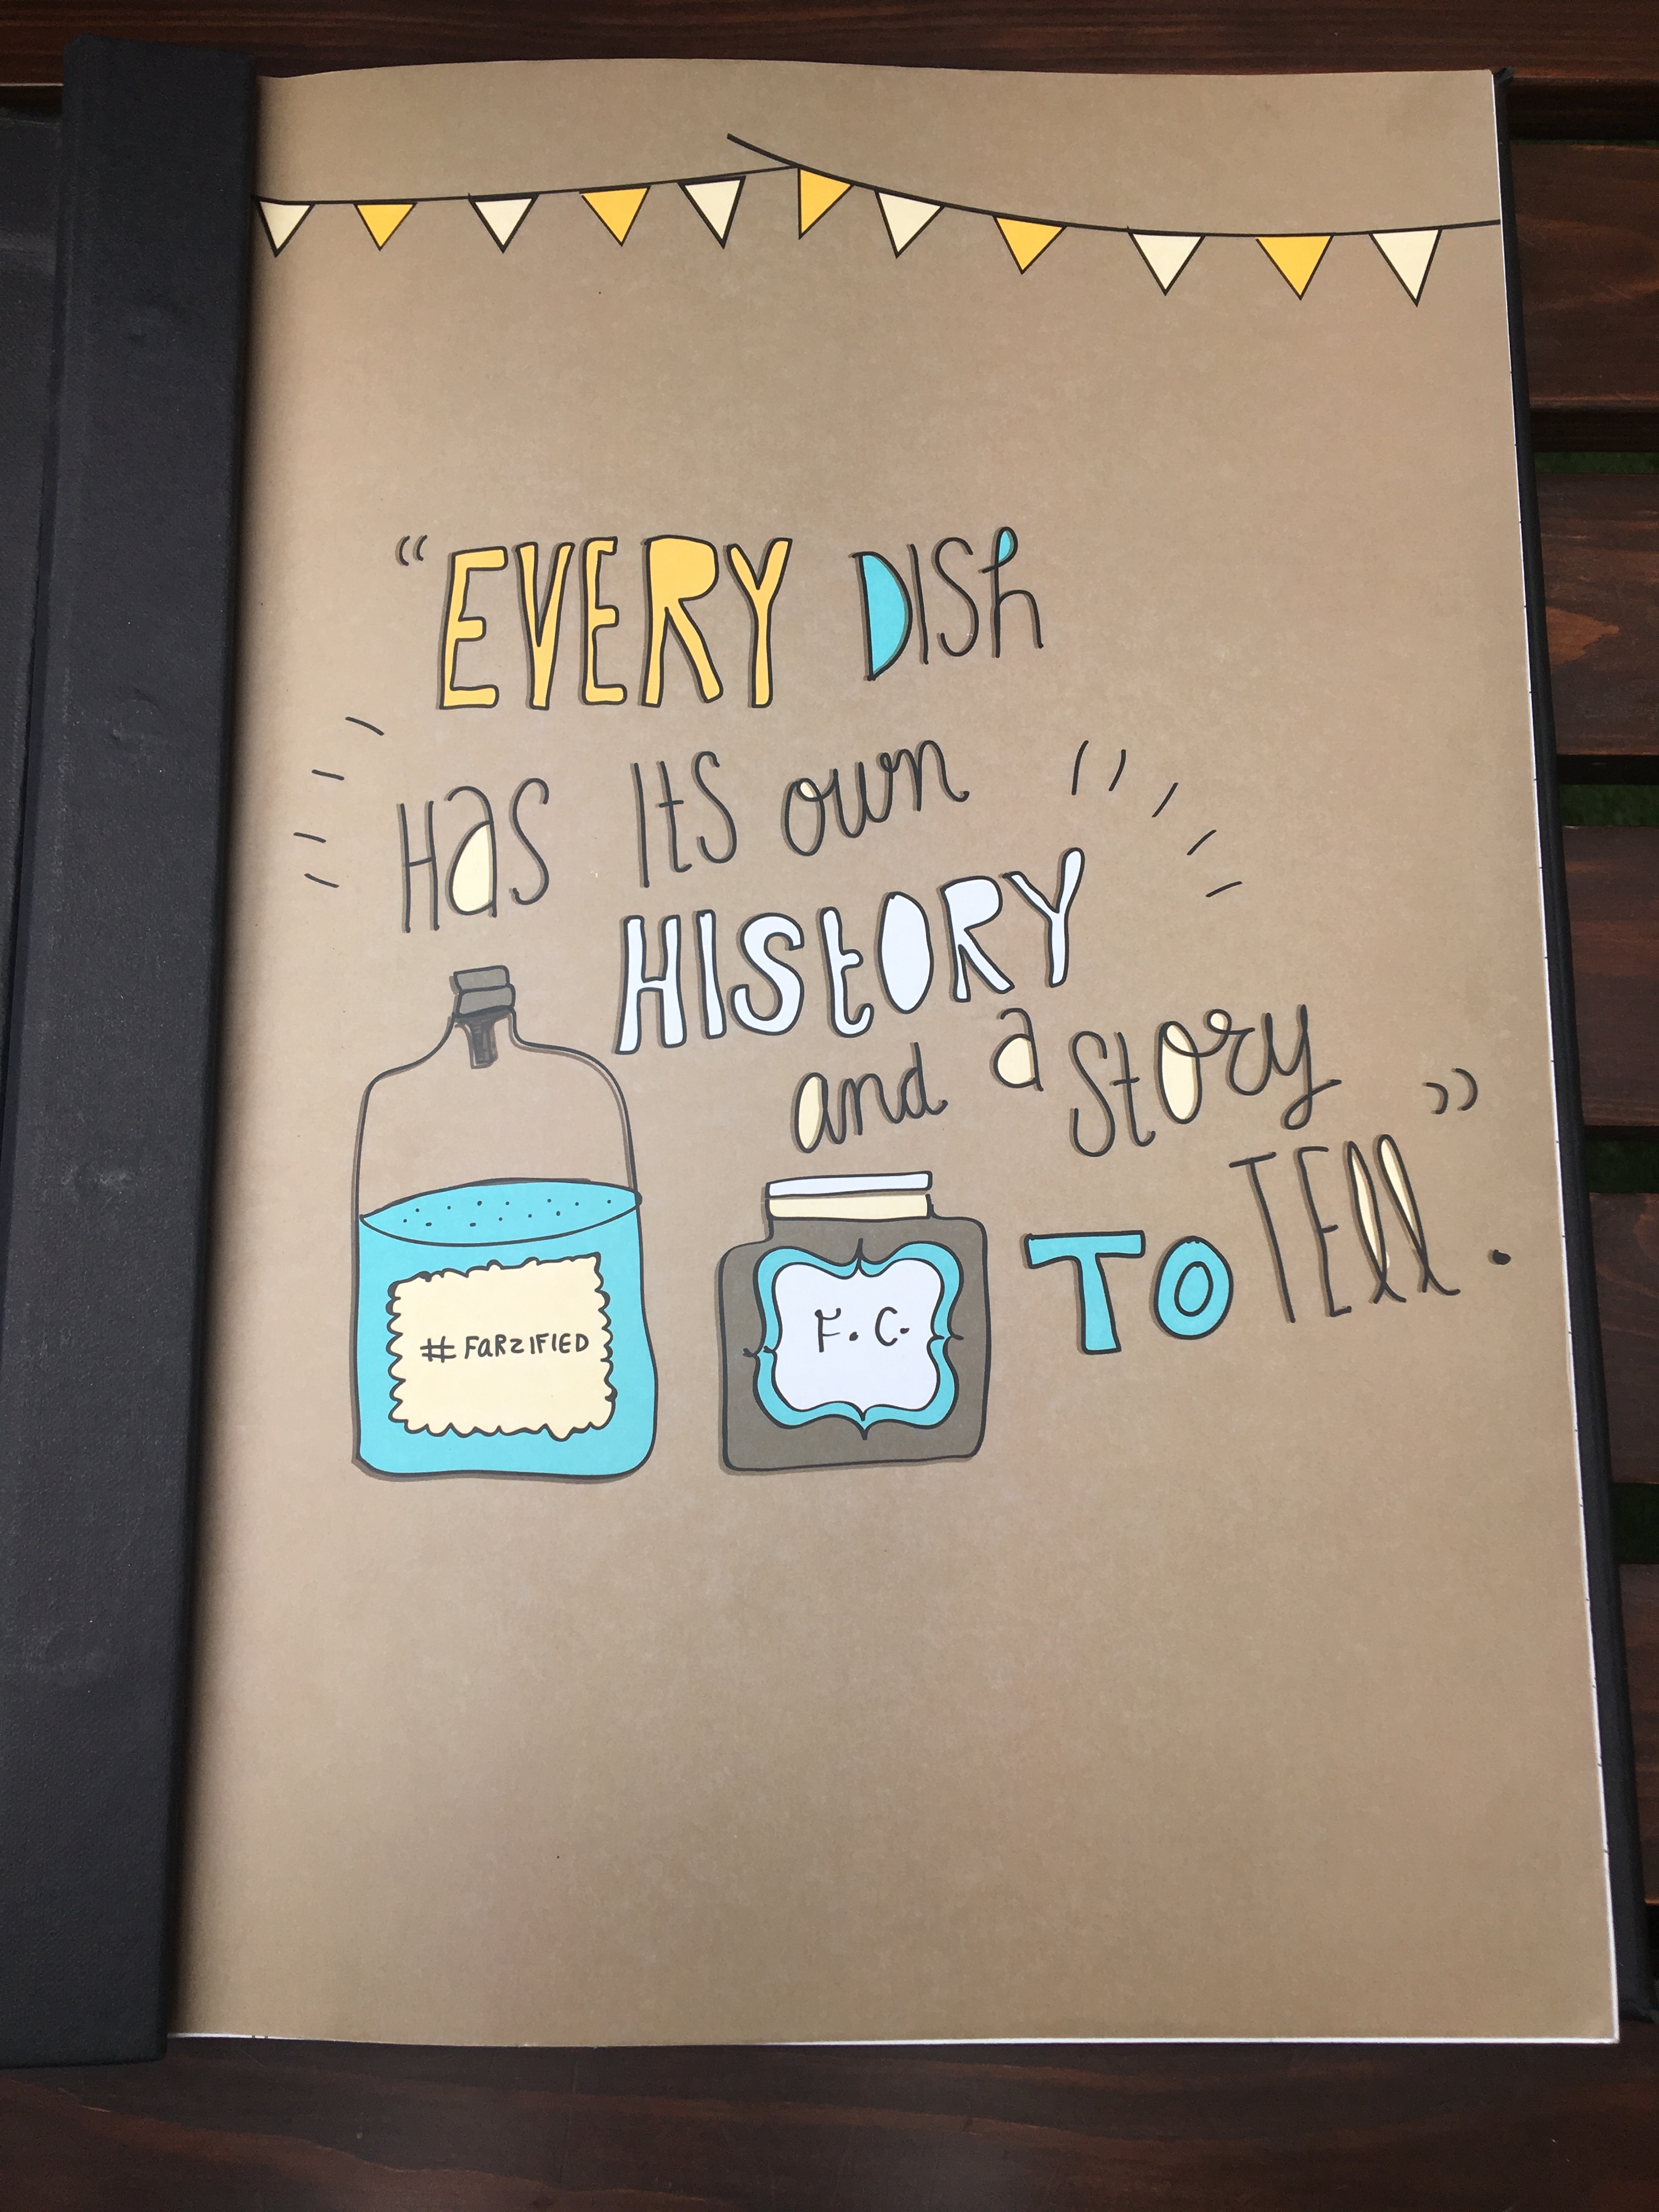 “EVERY DISh
Has ItS own
HIStORY
and a story
TO TEll.”
#FaRZIFIED
F. C.